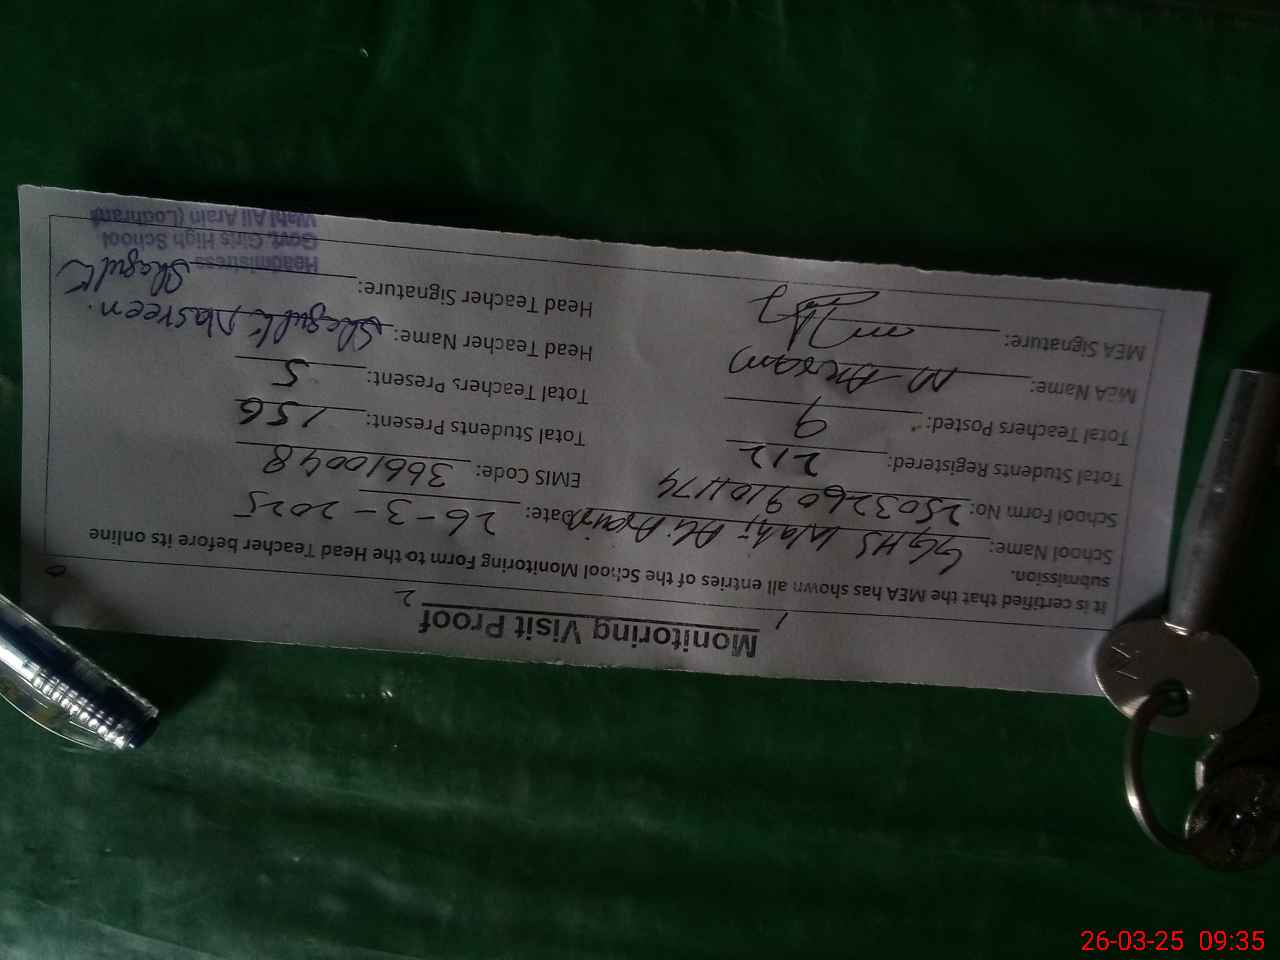 Monitoring Visit Proof
It is certified that the MEA has shown all entries of the School Monitoring Form to the Head Teacher before its online
submission.
School Name: GGHS Wahi Ali Arain Date: 26-3-2025
School Form No: 25032609101174 EMIS Code: 36610048
Total Students Registered: 212 Total Students Present: 156
Total Teachers Posted: 9 Total Teachers Present: 5
MEA Name: M. Akram Head Teacher Name: Shagufta Nasreen.
MEA Signature: Head Teacher Signature:
Headmistress
Govt. Girls High School
Wahi Ali Arain (Lodhran)
26-03-25 09:35